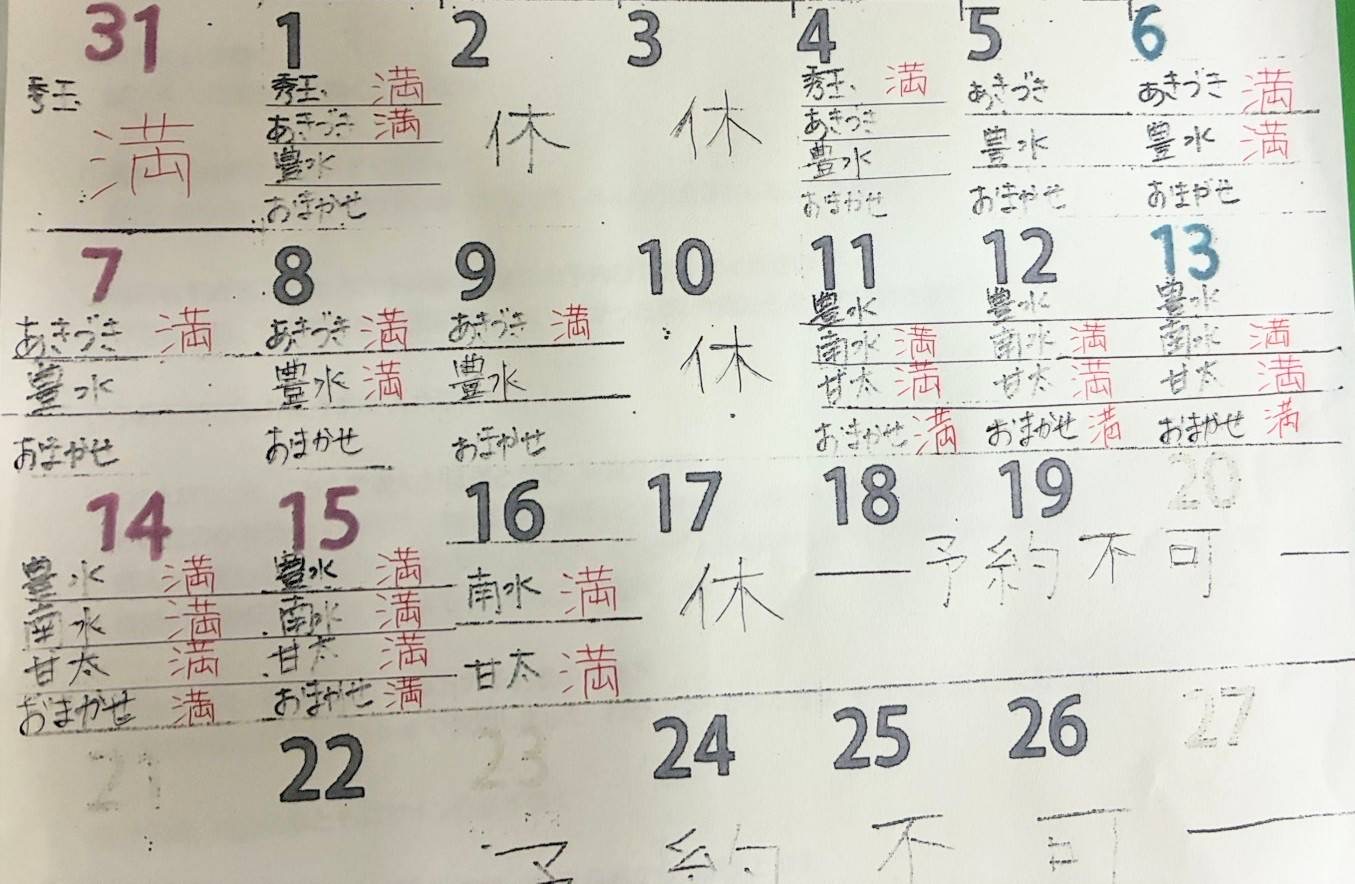 31 1 2 3 4 5 6
秀玉 満
秀玉 満
あきづき 満
豊水
おまかせ
休
休
秀玉 満
あきづき
豊水
おまかせ
あきづき
豊水
おまかせ
あきづき 満
豊水 満
おまかせ
7 8 9 10 11 12 13
あきづき 満
豊水
おまかせ
あきづき 満
豊水 満
おまかせ
あきづき 満
豊水
おまかせ
休
豊水
南水 満
甘太 満
おまかせ 満
豊水
南水 満
甘太 満
おまかせ 満
豊水
南水 満
甘太 満
おまかせ 満
14 15 16 17 18 19 20
豊水 満
南水 満
甘太 満
おまかせ 満
豊水 満
南水 満
甘太 満
おまかせ 満
南水 満
甘太 満
休
予約不可
21 22 23 24 25 26 27
予約不可